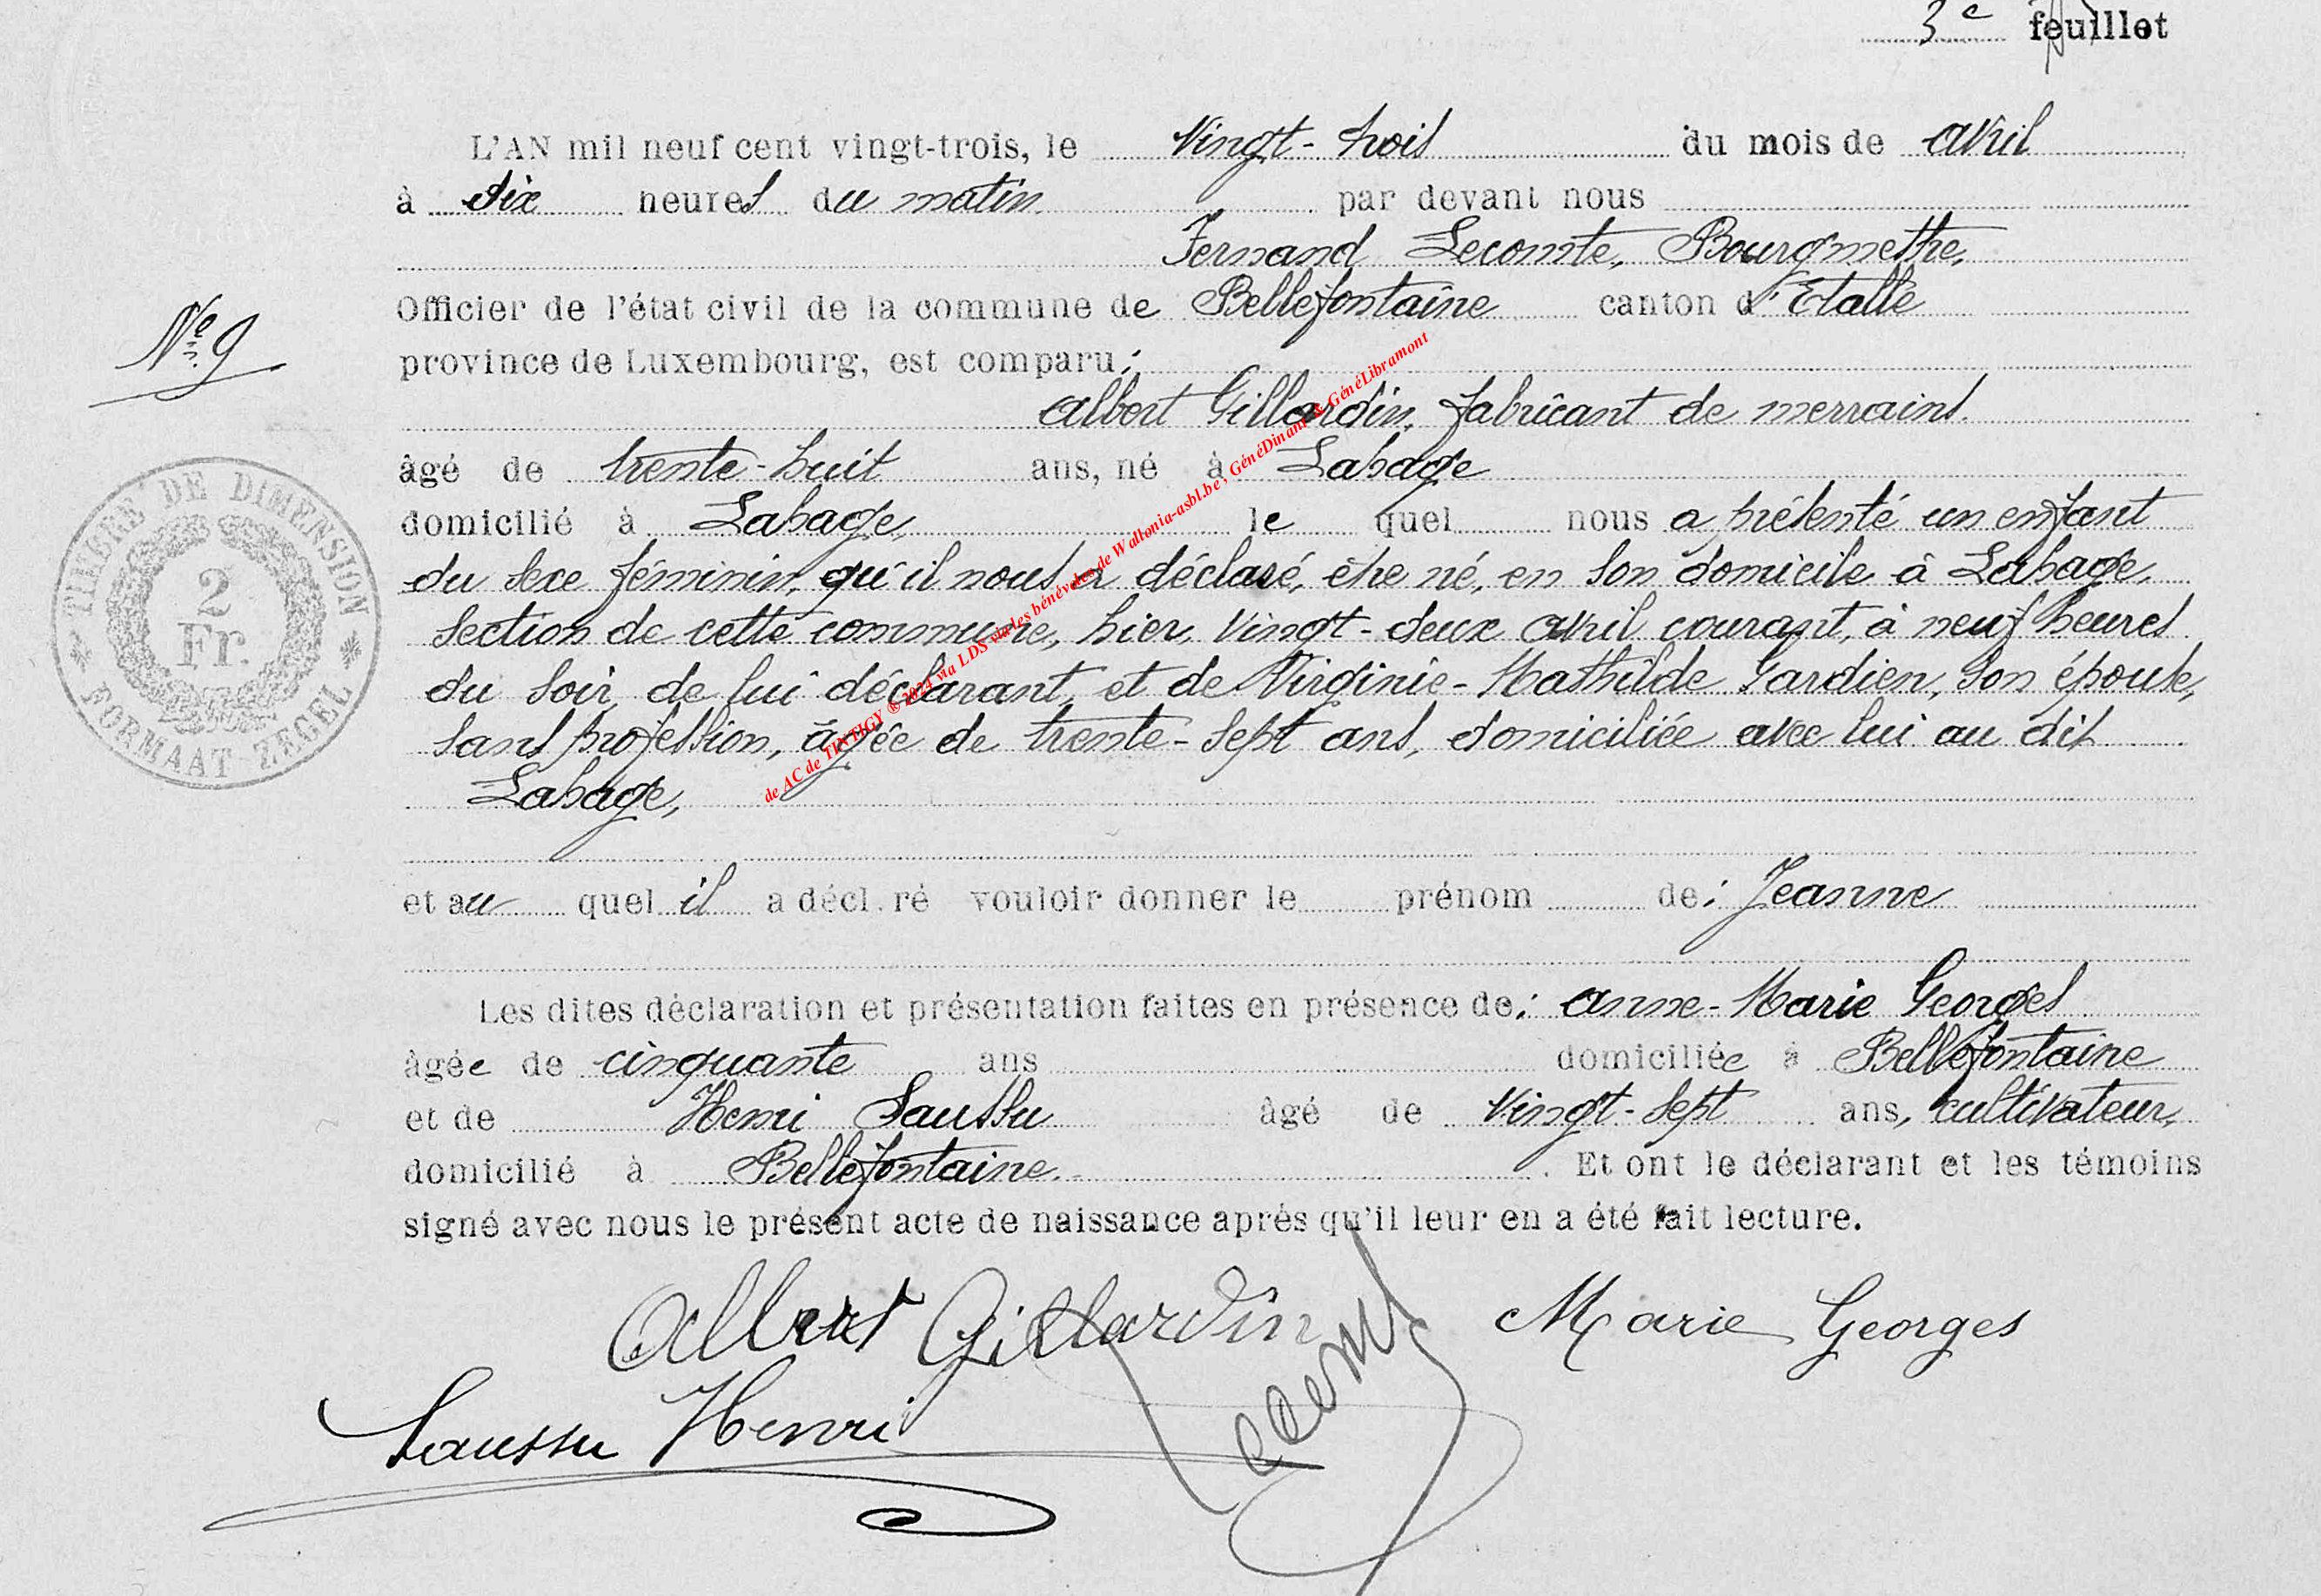 3e feuillet
L'AN mil neuf cent vingt-trois, le Vingt-trois du mois de avril
à dix heures du matin par devant nous
Fernand Lecomte, Bourgmestre,
Officier de l'état civil de la commune de Bellefontaine canton d'Etalle
N° 9
province de Luxembourg, est comparu :
Albert Gillardin, fabricant de merrains
âgé de trente-huit ans, né à Lahage
domicilié à Lahage, le quel nous a présenté un enfant
du sexe féminin, qu'il nous a déclaré, être né, en son domicile à Lahage,
section de cette commune, hier, vingt-deux avril courant, à neuf heures
du soir, de lui déclarant, et de Virginie-Mathilde Gardien, son épouse,
sans profession, âgée de trente-sept ans, domiciliée avec lui au dit
Lahage,
TIMBRE DE DIMENSION
2
Fr.
FORMAAT ZEGEL
de AC de TINTIGY ® 2024 via LDS via les bénévoles de Wallonia-asbl.be, GénéDinant & GénéLibramont
et au quel il a décl.ré vouloir donner le prénom de : Jeanne
Les dites déclaration et présentation faites en présence de : Anne-Marie Georges
âgée de cinquante ans domiciliée à Bellefontaine
et de Henri Saussu âgé de vingt-sept ans, cultivateur,
domicilié à Bellefontaine. Et ont le déclarant et les témoins
signé avec nous le présent acte de naissance après qu'il leur en a été fait lecture.
Albert Gillardin
Marie Georges
Lecomte
Saussu Henri